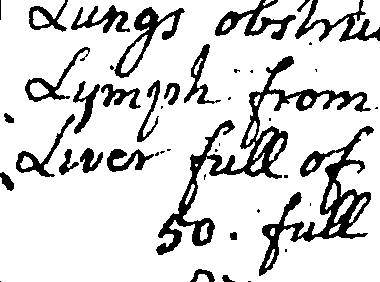 Lungs obstru
Lymph from
Liver full of
50. full